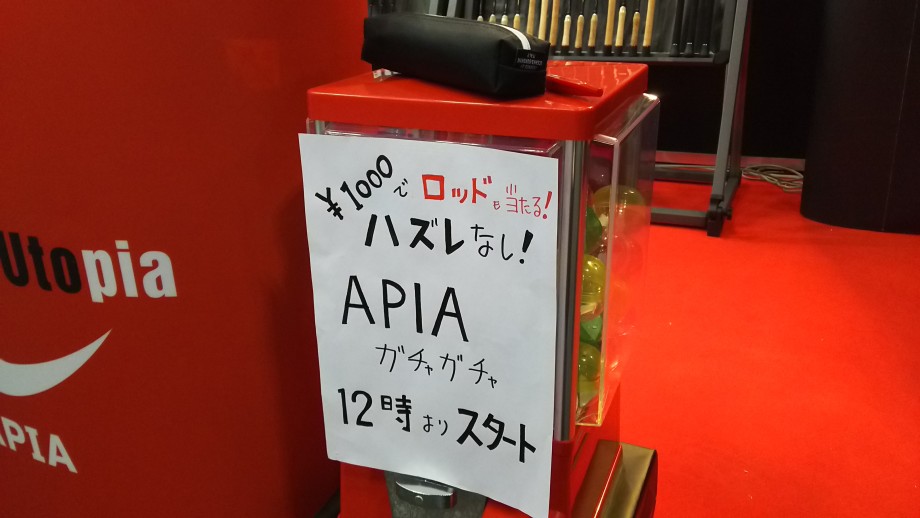 ¥1000で ロッドも当たる!
ハズレなし!
APIA
ガチャガチャ
12時よりスタート
Utopia
APIA